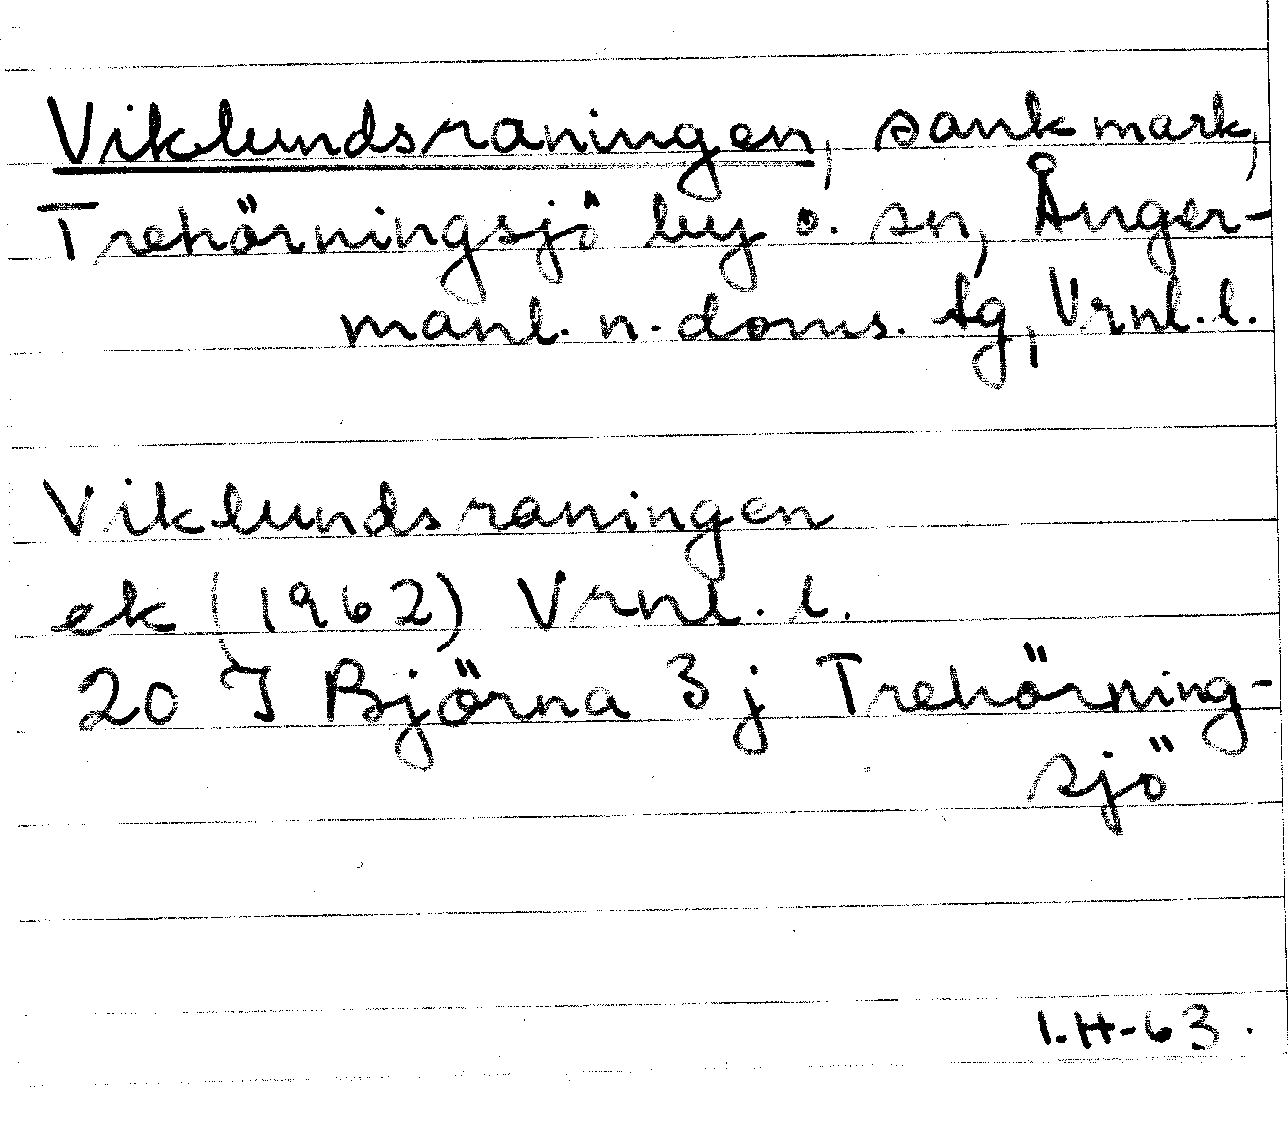 Viklundsraningen, sankmark,
Trehörningsjö by o. sn, Ånger-
manl. n. doms. tg, Vrnl. l.
Viklundsraningen
ek (1962) Vrnl. l.
20 I Björna 3 j Trehörning-
sjö
I.H-63.